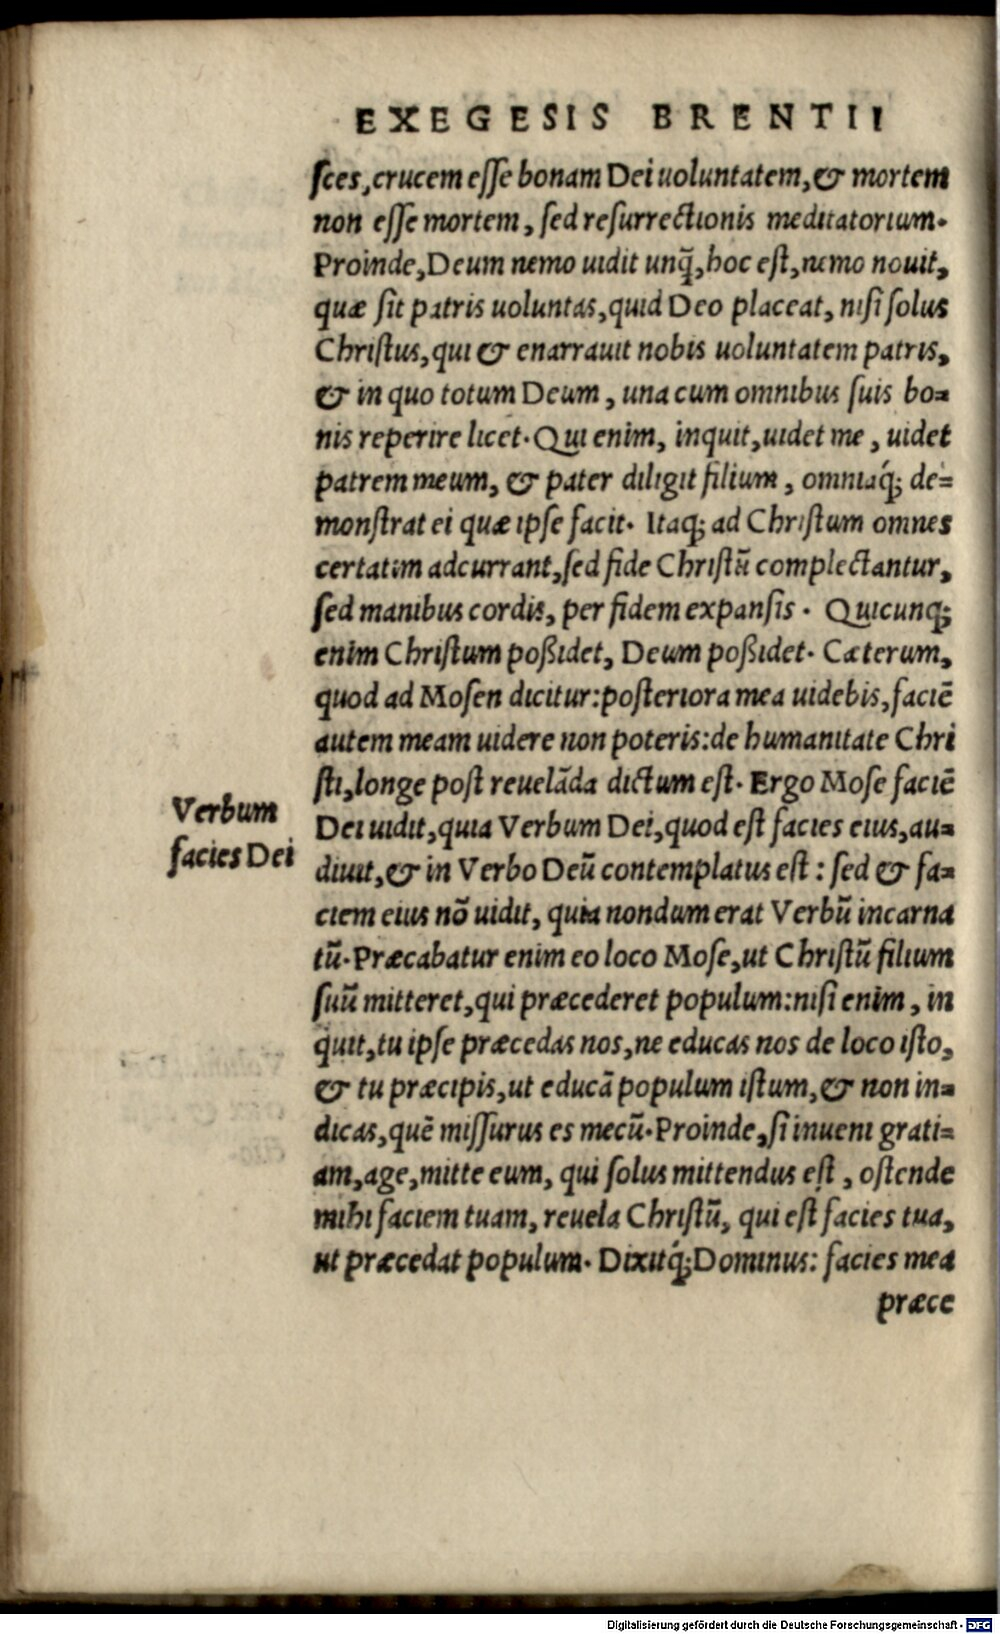 EXEGESIS BRENTII
ſces, crucem eſſe bonam Dei uoluntatem, & mortem
non eſſe mortem, ſed reſurrectionis meditatorium.
Proinde, Deum nemo uidit unq̃, hoc eſt, nemo nouit,
quæ ſit patris uoluntas, quid Deo placeat, niſi ſolus
Chriſtus, qui & enarrauit nobis uoluntatem patris,
& in quo totum Deum, una cum omnibus ſuis bo=
nis reperire licet. Qui enim, inquit, uidet me, uidet
patrem meum, & pater diligit filium, omniaq́; de=
monſtrat ei quæ ipſe facit. Itaq; ad Chriſtum omnes
certatim adcurrant, ſed fide Chriſtũ complectantur,
ſed manibus cordis, per fidem expanſis. Quicunq;
enim Chriſtum poßidet, Deum poßidet. Cæterum,
quod ad Moſen dicitur: poſteriora mea uidebis, faciẽ
autem meam uidere non poteris: de humanitate Chri
ſti, longe poſt reuelãda dictum eſt. Ergo Moſe faciẽ
Verbum
facies Dei
Dei uidit, quia Verbum Dei, quod eſt facies eius, au=
diuit, & in Verbo Deũ contemplatus eſt: ſed & fa=
ciem eius nõ uidit, quia nondum erat Verbũ incarna
tũ. Præcabatur enim eo loco Moſe, ut Chriſtũ filium
ſuũ mitteret, qui præcederet populum: niſi enim, in
quit, tu ipſe præcedas nos, ne educas nos de loco iſto,
& tu præcipis, ut educã populum iſtum, & non in=
dicas, quẽ miſſurus es mecũ. Proinde, ſi inueni grati=
am, age, mitte eum, qui ſolus mittendus eſt, oſtende
mihi faciem tuam, reuela Chriſtũ, qui eſt facies tua,
ut præcedat populum. Dixitq́; Dominus: facies mea
præce
Digitalisierung gefördert durch die Deutsche Forschungsgemeinschaft - DFG